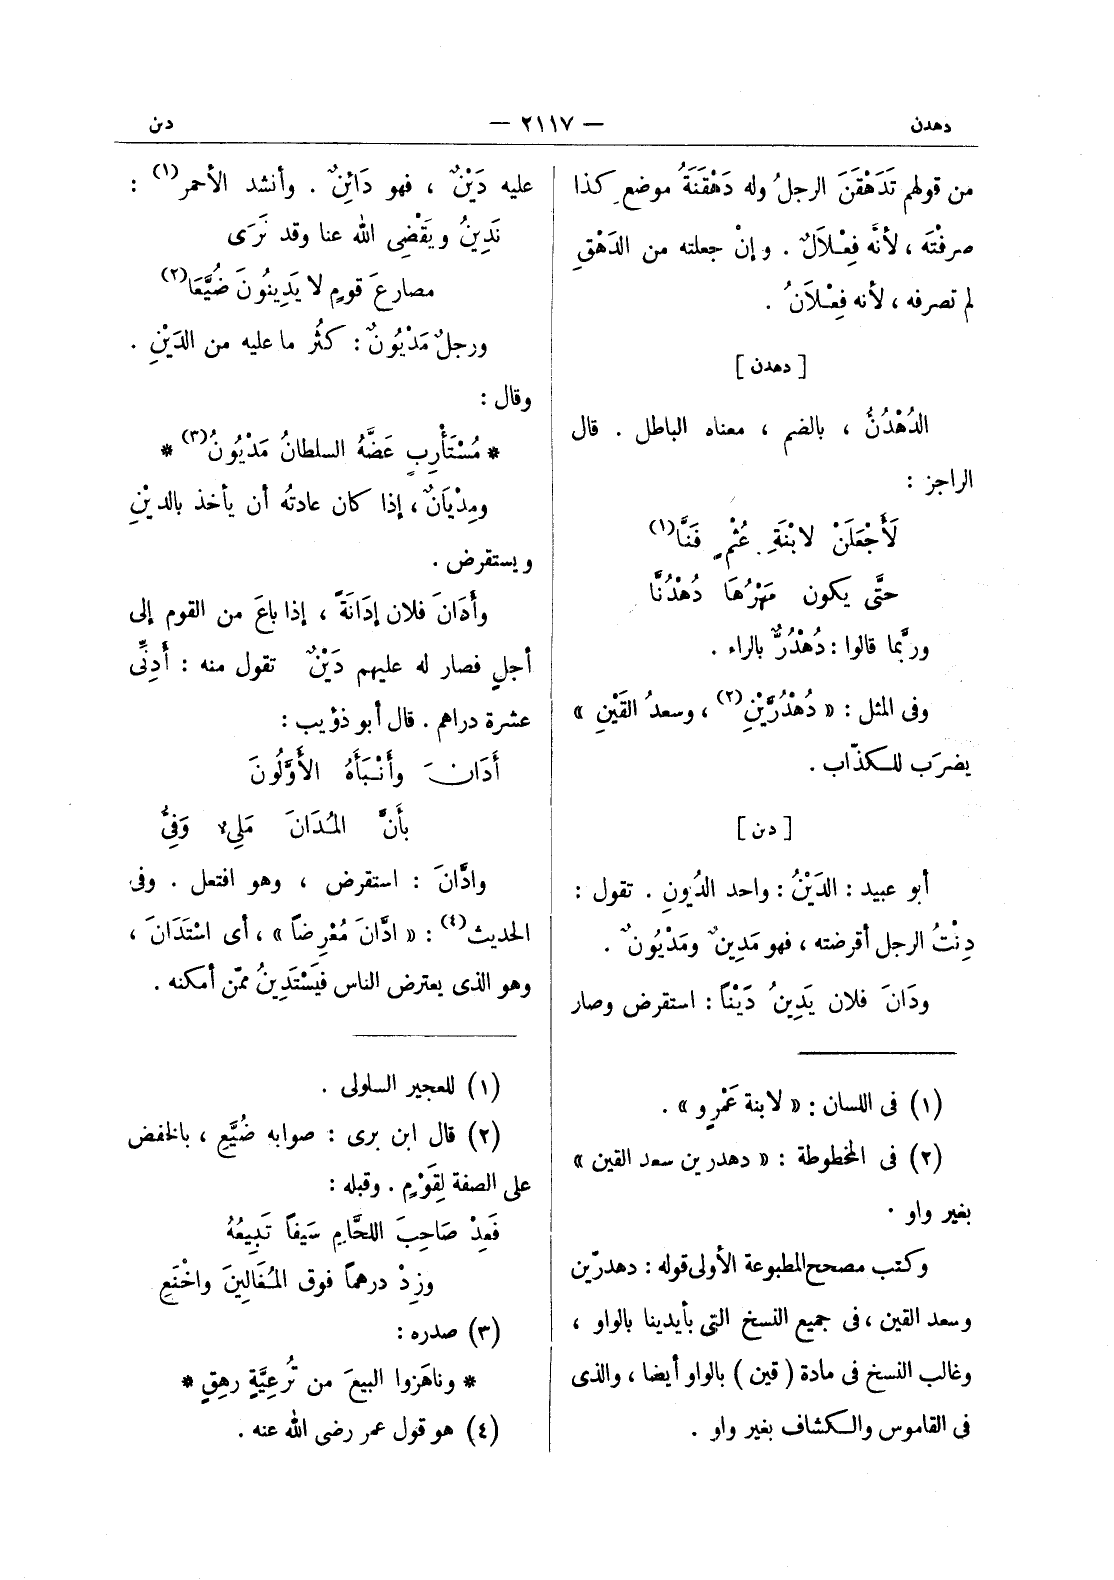 دهدن — ٢١١٧ — دين
من قولهم تَدَهْقَنَ الرجلُ وله دَهْقَنَةُ موضعِ كذا
صرفْتَه ، لأنَّه فِعْلَالٌ . وإنْ جعلته من الدَهْقِ
لم تصرفه ، لأنه فِعْلَانُ .
[ دهدن ]
الدُهْدُنُّ ، بالضم ، معناه الباطل . قال
الراجز :
لَأَجْعَلَنْ لابْنَةِ عُثْمٍ فَنَّا(١)
حتَّى يكون مَهْرُهَا دُهْدُنَّا
وربَّما قالوا : دُهْدُرٌّ بالراء .
وفى المثل : « دُهْدُرَّيْنِ(٢) ، وسعدُ القَيْنِ »
يضرَب للكذّاب .
[ دين ]
أبو عبيد : الدَيْنُ : واحد الدُيونِ . تقول :
دِنْتُ الرجل أقرضته ، فهو مَدِينٌ ومَدْيُونٌ .
ودَانَ فلان يَدِينُ دَيْنًا : استقرض وصار
(١) فى اللسان : « لابنة عَمْرٍو » .
(٢) فى المخطوطة : « دهدرين سعد القين »
بغير واو .
وكتب مصحح المطبوعة الأولى قوله : دهدرّين
وسعد القين ، فى جميع النسخ التى بأيدينا بالواو ،
وغالب النسخ فى مادة ( قين ) بالواو أيضا ، والذى
فى القاموس والكشاف بغير واو .
عليه دَيْنٌ ، فهو دَائِنٌ . وأنشد الأحمر(١) :
نَدِينُ ويَقْضِى الله عنا وقد نَرَى
مصارعَ قومٍ لا يَدِينُونَ ضُيَّعَا(٢)
ورجلٌ مَدْيُونٌ : كثُر ما عليه من الدَيْنِ .
وقال :
* مُسْتَأْرِبٍ عَضَّهُ السلطانُ مَدْيُونُ(٣) *
ومِدْيَانٌ ، إذا كان عادتهُ أن يأخذ بالديْنِ
ويستقرض .
وأَدَانَ فلان إِدَانَةً ، إذا باعَ من القوم إلى
أجلٍ فصار له عليهم دَيْنٌ تقول منه : أَدِنِّى
عشرة دراهم . قال أبو ذؤيب :
أَدَانَ وأَنْبَأَهُ الأَوَّلُونَ
بأَنَّ المُدَانَ مَلِىءٌ وَفِىُّ
وادَّانَ : استقرض ، وهو افتعل . وفى
الحديث(٤) : « ادَّانَ مُعْرِضًا » ، أى اسْتَدَانَ ،
وهو الذى يعترض الناس فيَسْتَدِينُ ممّن أمكنه .
(١) للعجير السلولى .
(٢) قال ابن برى : صوابه ضُيَّعِ ، بالخفض
على الصفة لِقَوْمٍ . وقبله :
فَعِدْ صَاحِبَ اللحَّامِ سَيفًا تَبِيعُهُ
وزِدْ درهمًا فوق المُغَالِينَ واخْنَعِ
(٣) صدره :
* وناهَزوا البيعَ من تُرْعِيَّةٍ رهِقٍ *
(٤) هو قول عمر رضى الله عنه .